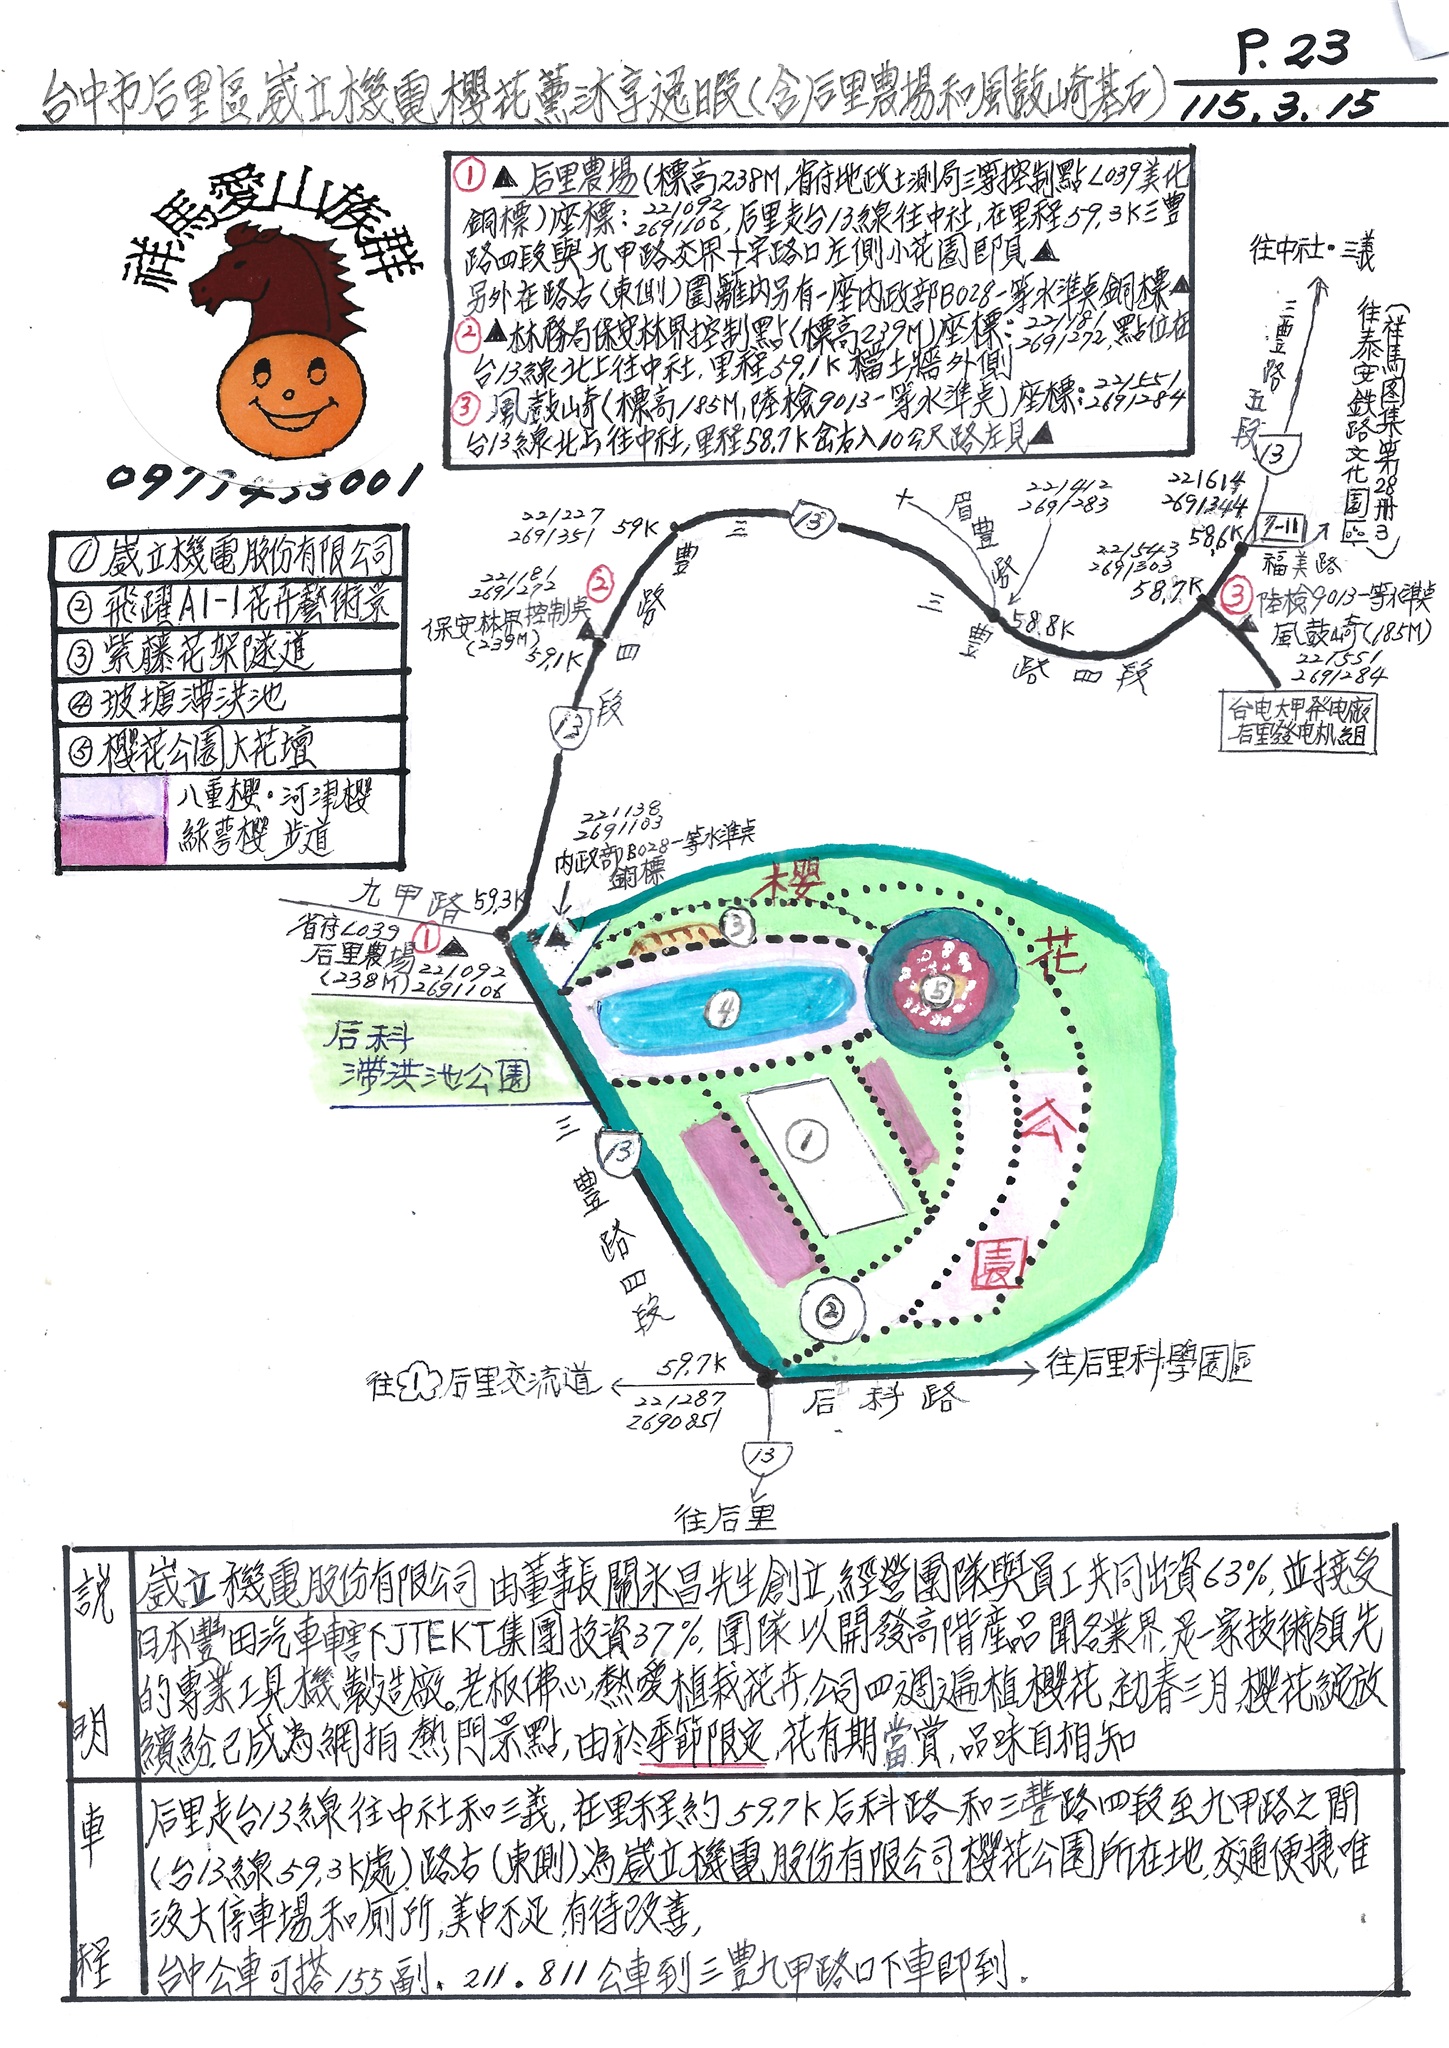 P.23
台中市后里區崴立機電櫻花薰沐享逸暇(含后里農場和風鼓崎基石)
115.3.15
祥馬愛山族群
①▲后里農場(標高238M,省府地政土測局三等控制點L039美化
銅標)座標:221092 2691106,后里走台13線往中社,在里程59.3K三豐
路四段與九甲路交界十字路口左側小花園即見▲
另外在路右(東側)圍籬內另有一座內政部B028一等水準点銅標▲
②▲林務局保安林界控制點(標高239M)座標:221181 2691272,點位在
台13線北上往中社,里程59.1K檔土牆外側
③風鼓崎(標高185M,陸檢9013一等水準点)座標:221551 2691284
台13線北上往中社,里程58.7K岔右入10公尺路左見▲
往中社·三義
三豐路五段
13
(祥馬图集第28冊3)
往泰安鉄路文化園區
①崴立機電股份有限公司
②飛躍A1-1花卉藝術景
③紫藤花架隧道
④坡塘滯洪池
⑤櫻花公園大花壇
八重櫻·河津櫻
綠萼櫻 步道
221227
2691351
59K
三豐路四段
13
眉豐路
221412
2691283
58.8K
三豐路四段
221614
2691344
58.6K
7-11
福美路
221543
2691303
58.7K
③陸檢9013一等水準点
風鼓崎(185M)
221551
2691284
台电大甲発电廠
后里發电机組
221181
2691272
②
保安林界控制点
(239M)
59.1K
13
221138
2691103
內政部B028一等水準点
銅標
九甲路
59.3K
省府L039
①
后里農場
(238M)
221092
2691106
后科
滯洪池公園
櫻花公園
③
④
⑤
①
②
三豐路四段
13
59.7K
221287
2690851
往1后里交流道
后科路
往后里科學園區
13
往后里
說明
崴立機電股份有限公司由董事長關永昌先生創立,經營團隊與員工共同出資63%,並接受
日本豐田汽車轄下JTEKT集團投資37%,團隊以開發高階產品聞名業界,是一家技術領先
的專業工具機製造廠。老板佛心,熱愛植栽花卉,公司四週遍植櫻花,初春三月,櫻花綻放
繽紛,已成為網拍熱門景點,由於季節限定,花有期當賞,品味自相知
車程
后里走台13線往中社和三義,在里程約59.7K后科路和三豐路四段至九甲路之間
(台13線59.3K處)路右(東側)為崴立機電股份有限公司櫻花公園所在地,交通便捷,唯
沒大停車場和廁所,美中不足,有待改善,
台中公車可搭155副.211.811公車到三豐九甲路口下車即到.